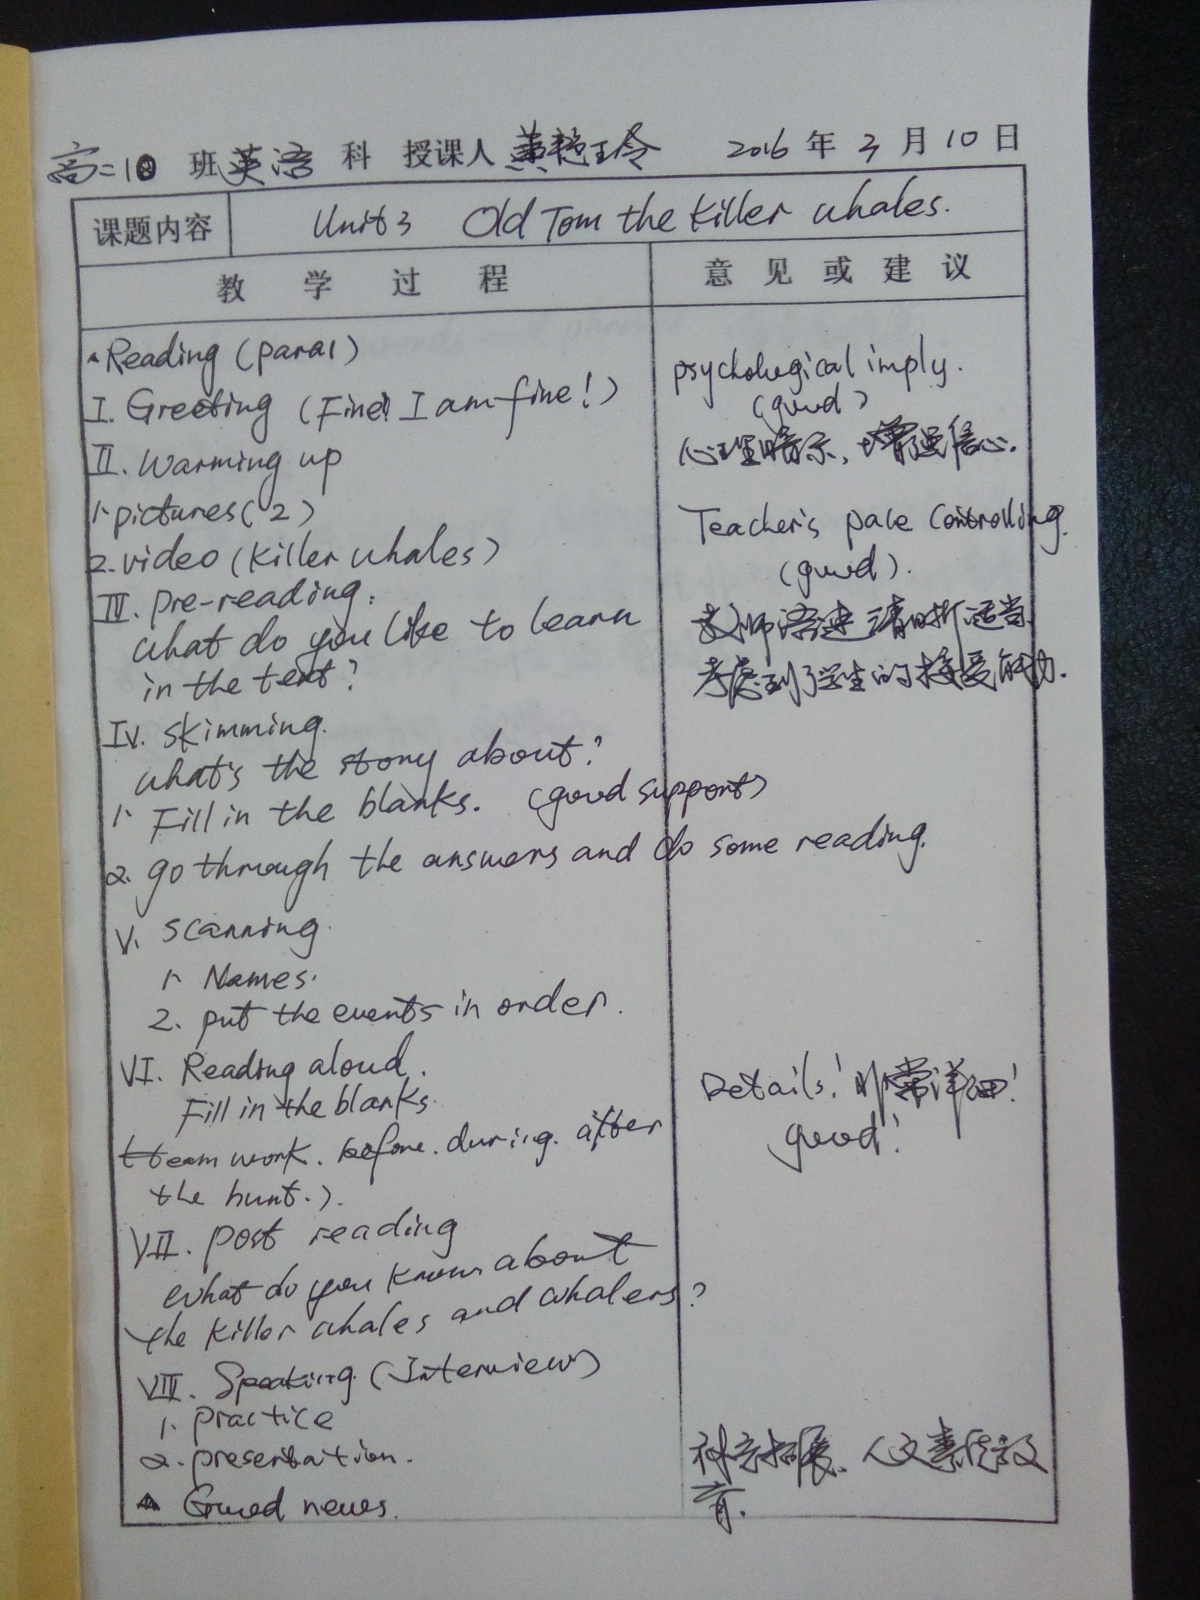 高二10 班 英语 科 授课人 黄艳玲 2016 年 3 月 10 日
课题内容 Unit3 Old Tom the killer whales.
教 学 过 程 意 见 或 建 议
Reading (para1)
I. Greeting (Fine! I am fine!)
psychological imply.
(good)
II. Warming up
心理暗示、增强信心.
1. pictures (2)
Teacher's pace controlling.
2. video (killer whales)
(good).
III. pre-reading:
what do you like to learn
教师语速清晰适当、
in the text?
考虑到了学生的接受能力.
IV. skimming.
what's the story about?
1. Fill in the blanks. (good support)
2. go through the answers and do some reading.
V. scanning.
1. Names.
2. put the events in order.
VI. Reading aloud.
Details! 非常详细!
Fill in the blanks.
good!
(team work. before. during. after
the hunt.).
VII. post reading
what do you know about
the killer whales and whalers?
VIII. Speaking. (Interview)
1. practice
2. presentation.
补充拓展、人文素质教
育.
Good news.